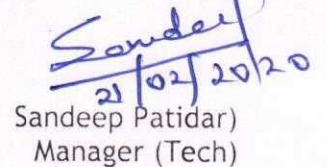 Sandeep
21/02/2020
Sandeep Patidar)
Manager (Tech)